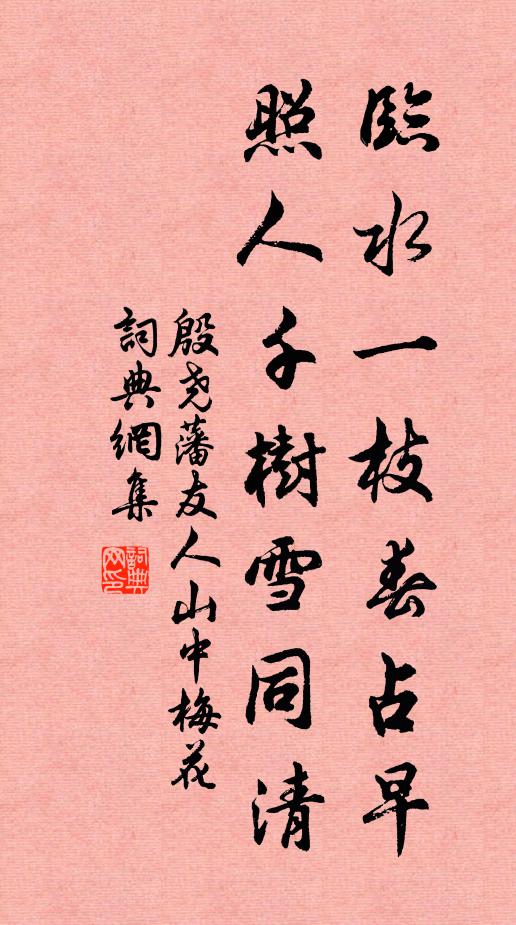 臨水一枝春占早
照人千樹雪同清
殷尧藩友人山中梅花
詞典網集
詞典网印